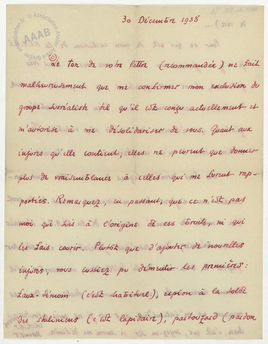 30 Décembre 1938
Le ton de votre lettre (recommandée) ne fait
malheureusement que me confirmer mon exclusion du
groupe surréaliste tel qu'il est conçu actuellement et
m'autorise à me désolidariser de vous. Quant aux
injures qu'elle contient, elles ne peuvent que donner
plus de vraisemblance à celles qui me furent rap-
portées. Remarquez, en passant, que ce n'est pas
moi qui suis à l'origine de ces bruits, ni qui
les fais courir. Plutôt que d'ajouter de nouvelles
injures, vous eussiez pu démentir les premières :
faux-témoin (c'est, espion à la solde
du stalinien (c'est lapidaire), (pardon
AAAB